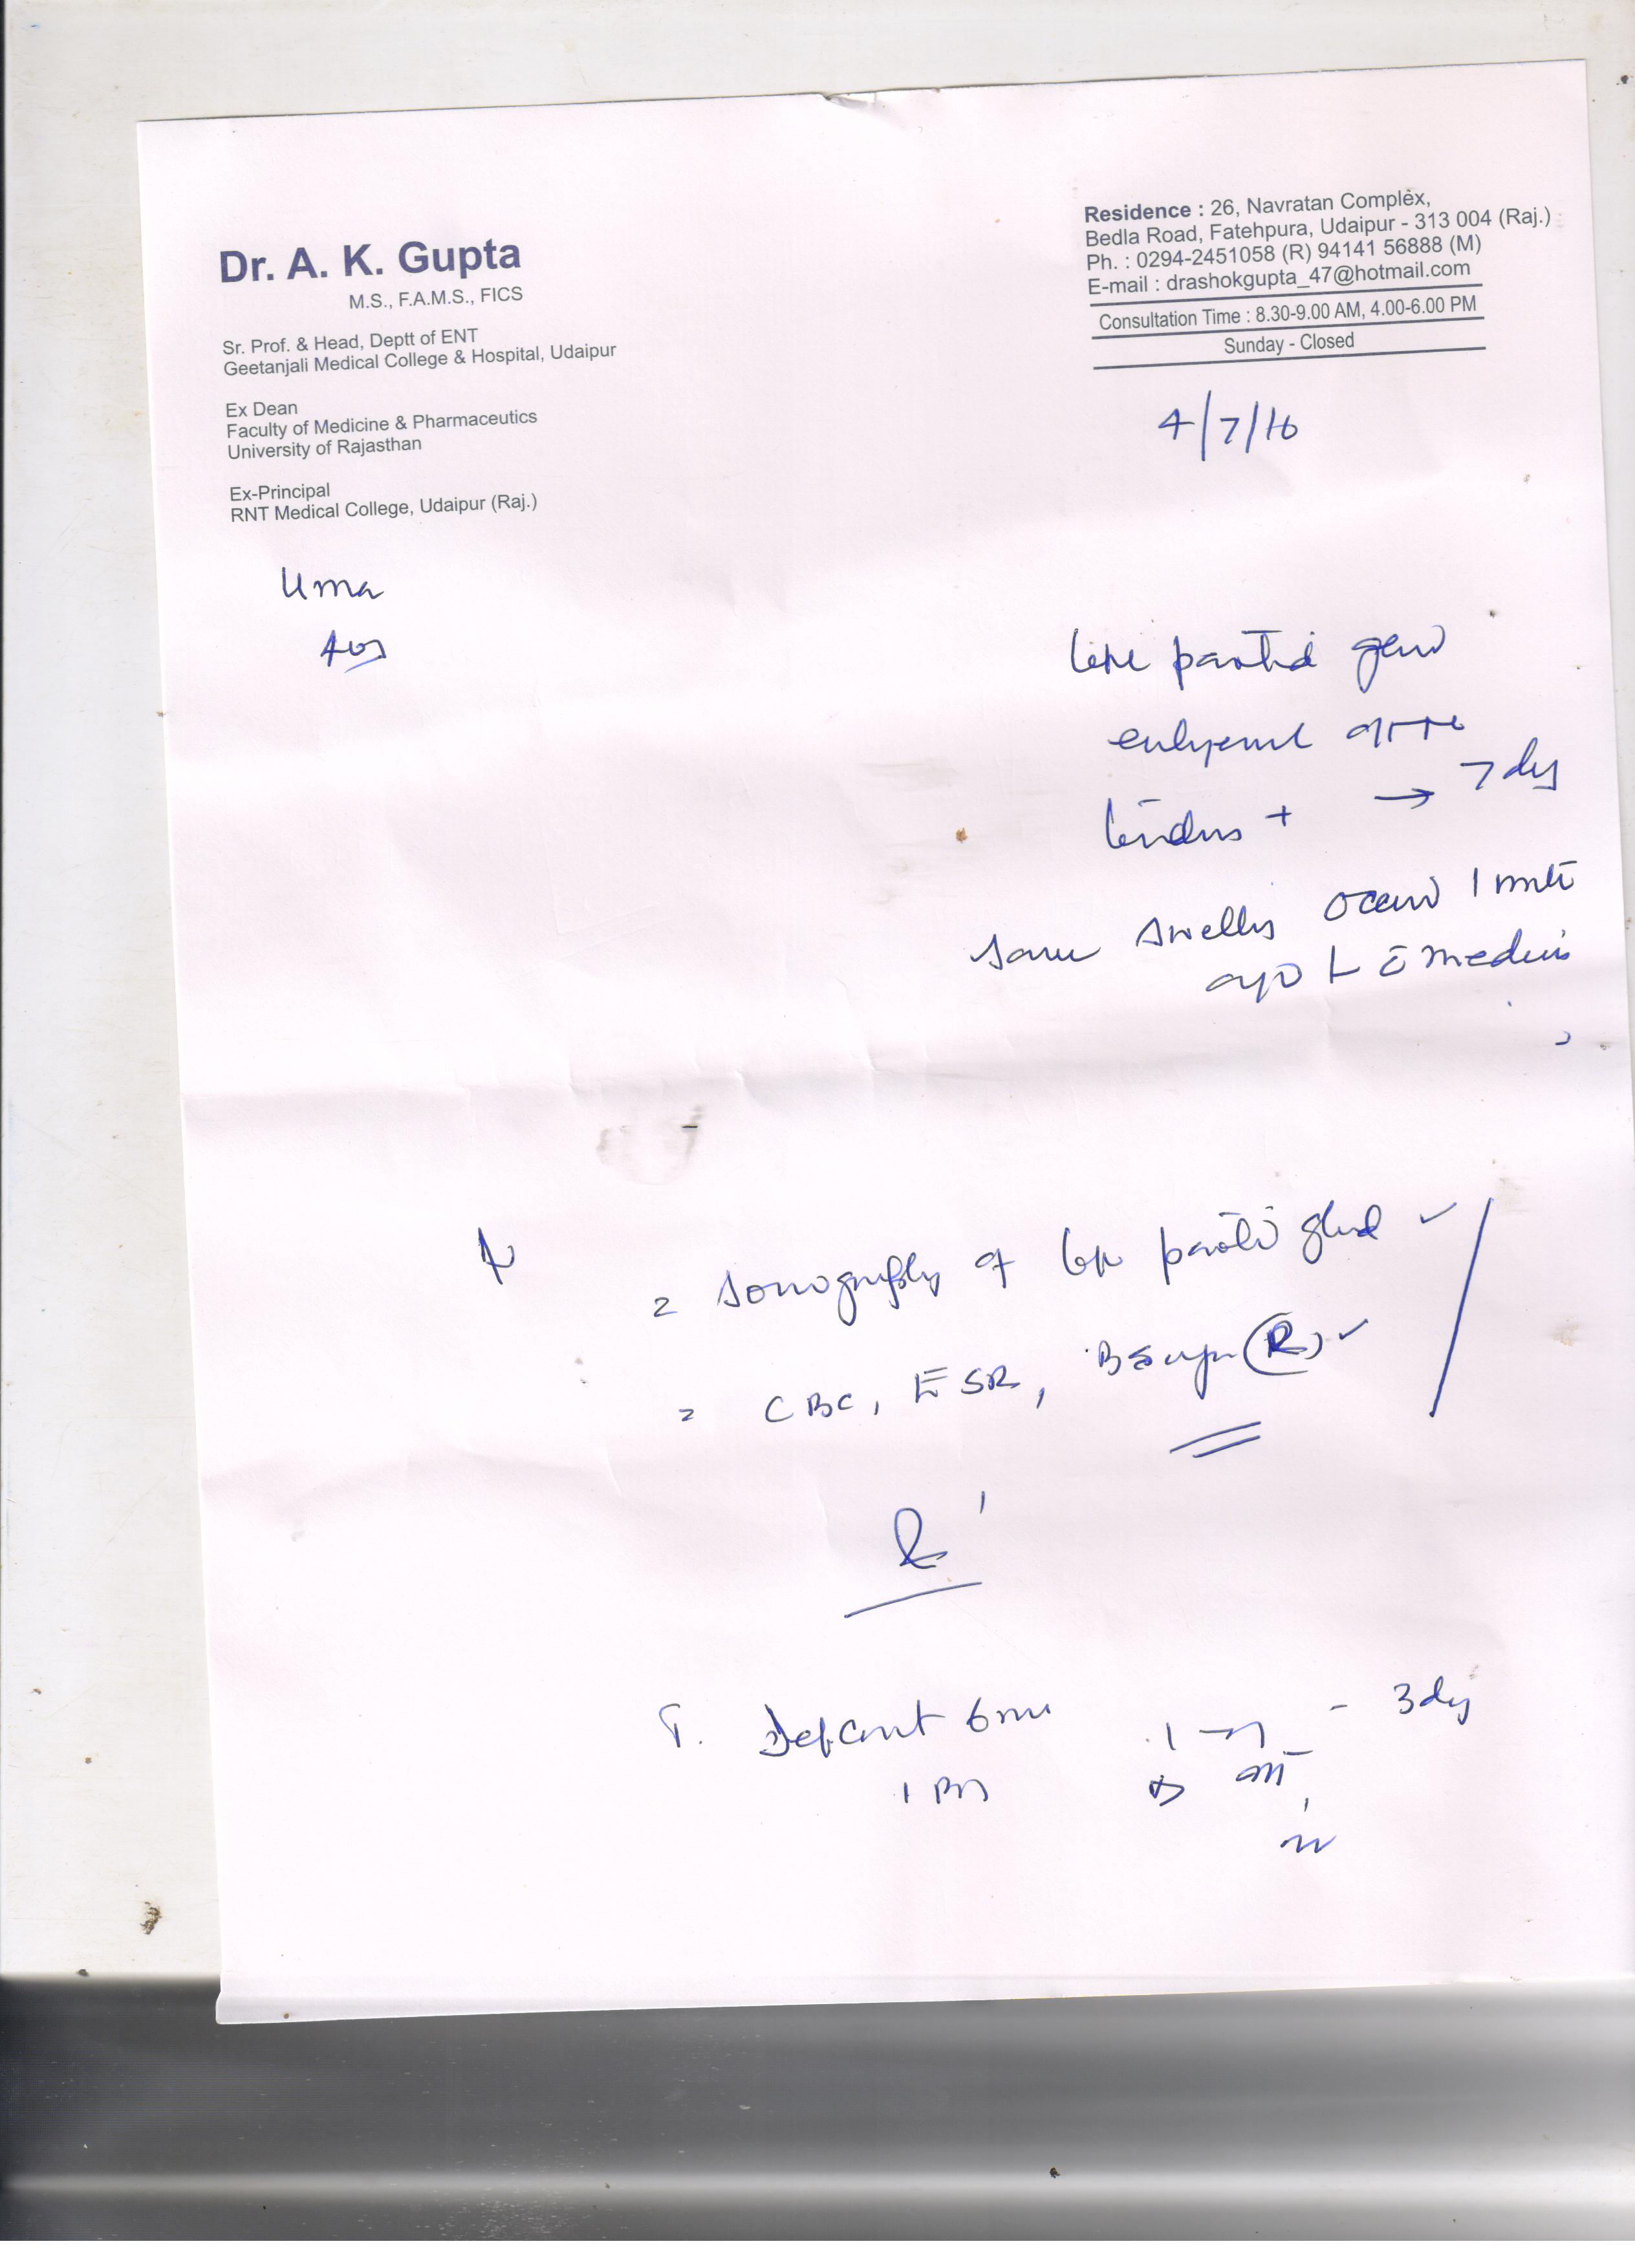 Dr. A. K. Gupta
M.S., F.A.M.S., FICS
Sr. Prof. & Head, Deptt of ENT
Geetanjali Medical College & Hospital, Udaipur
Ex Dean
Faculty of Medicine & Pharmaceutics
University of Rajasthan
Ex-Principal
RNT Medical College, Udaipur (Raj.)
Residence : 26, Navratan Complex,
Bedla Road, Fatehpura, Udaipur - 313 004 (Raj.)
Ph. : 0294-2451058 (R) 94141 56888 (M)
E-mail : drashokgupta_47@hotmail.com
Consultation Time : 8.30-9.00 AM, 4.00-6.00 PM
Sunday - Closed
4/7/16
Uma
parotid gland
enlargement
+ → 7 dys
same swelling occured 1 month
ago medicine
= sonography of parotid gland ✓
= CBC, ESR, B sugar (R) ✓
Defcort 6 mg
1 - 3 dys